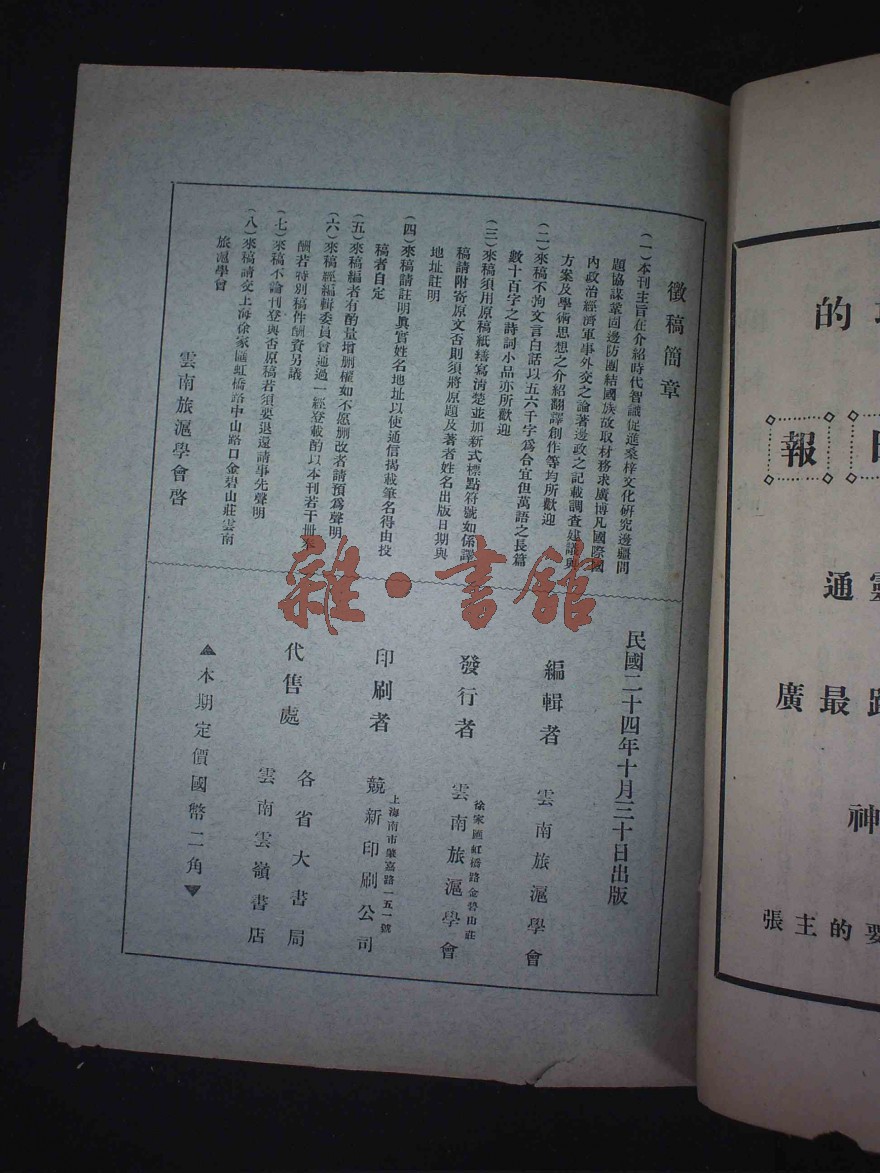 徵稿簡章
(一)本刊主旨在介紹時代智識促進桑梓文化研究邊疆問
題協謀鞏固邊防團結國族故取材務求廣博凡國際國
內政治經濟軍事外交之論著邊政之記載調查建議與
方案及學術思想之介紹翻譯創作等均所歡迎
(二)來稿不拘文言白話以五六千字爲合宜但萬語之長篇
數十百字之詩詞小品亦所歡迎
(三)來稿須用原稿紙繕寫清楚並加新式標點符號如係譯
稿請附寄原文否則須將原題及著者姓名出版日期與
地址註明
(四)來稿請註明眞實姓名地址以使通信揭載筆名得由投
稿者自定
(五)來稿編者有酌量增删權如不愿删改者請預爲聲明
(六)來稿經編輯委員會通過一經登載酌以本刊若干冊
酬若特別稿件酬資另議
(七)來稿不論刊登與否原稿若須要退還請事先聲明
(八)來稿請交上海徐家匯虹橋路中山路口金碧山莊雲南
旅滬學會
雲南旅滬學會啓
民國二十四年十月三十日出版
編輯者 雲南旅滬學會
發行者 徐家匯虹橋路金碧山莊
雲南旅滬學會
印刷者 上海南市肇嘉路一五一號
競新印刷公司
代售處 各省大書局
雲南雲嶺書店
▲本期定價國幣二角▼
雜·書館
的
報
通
廣最
神
張主的要